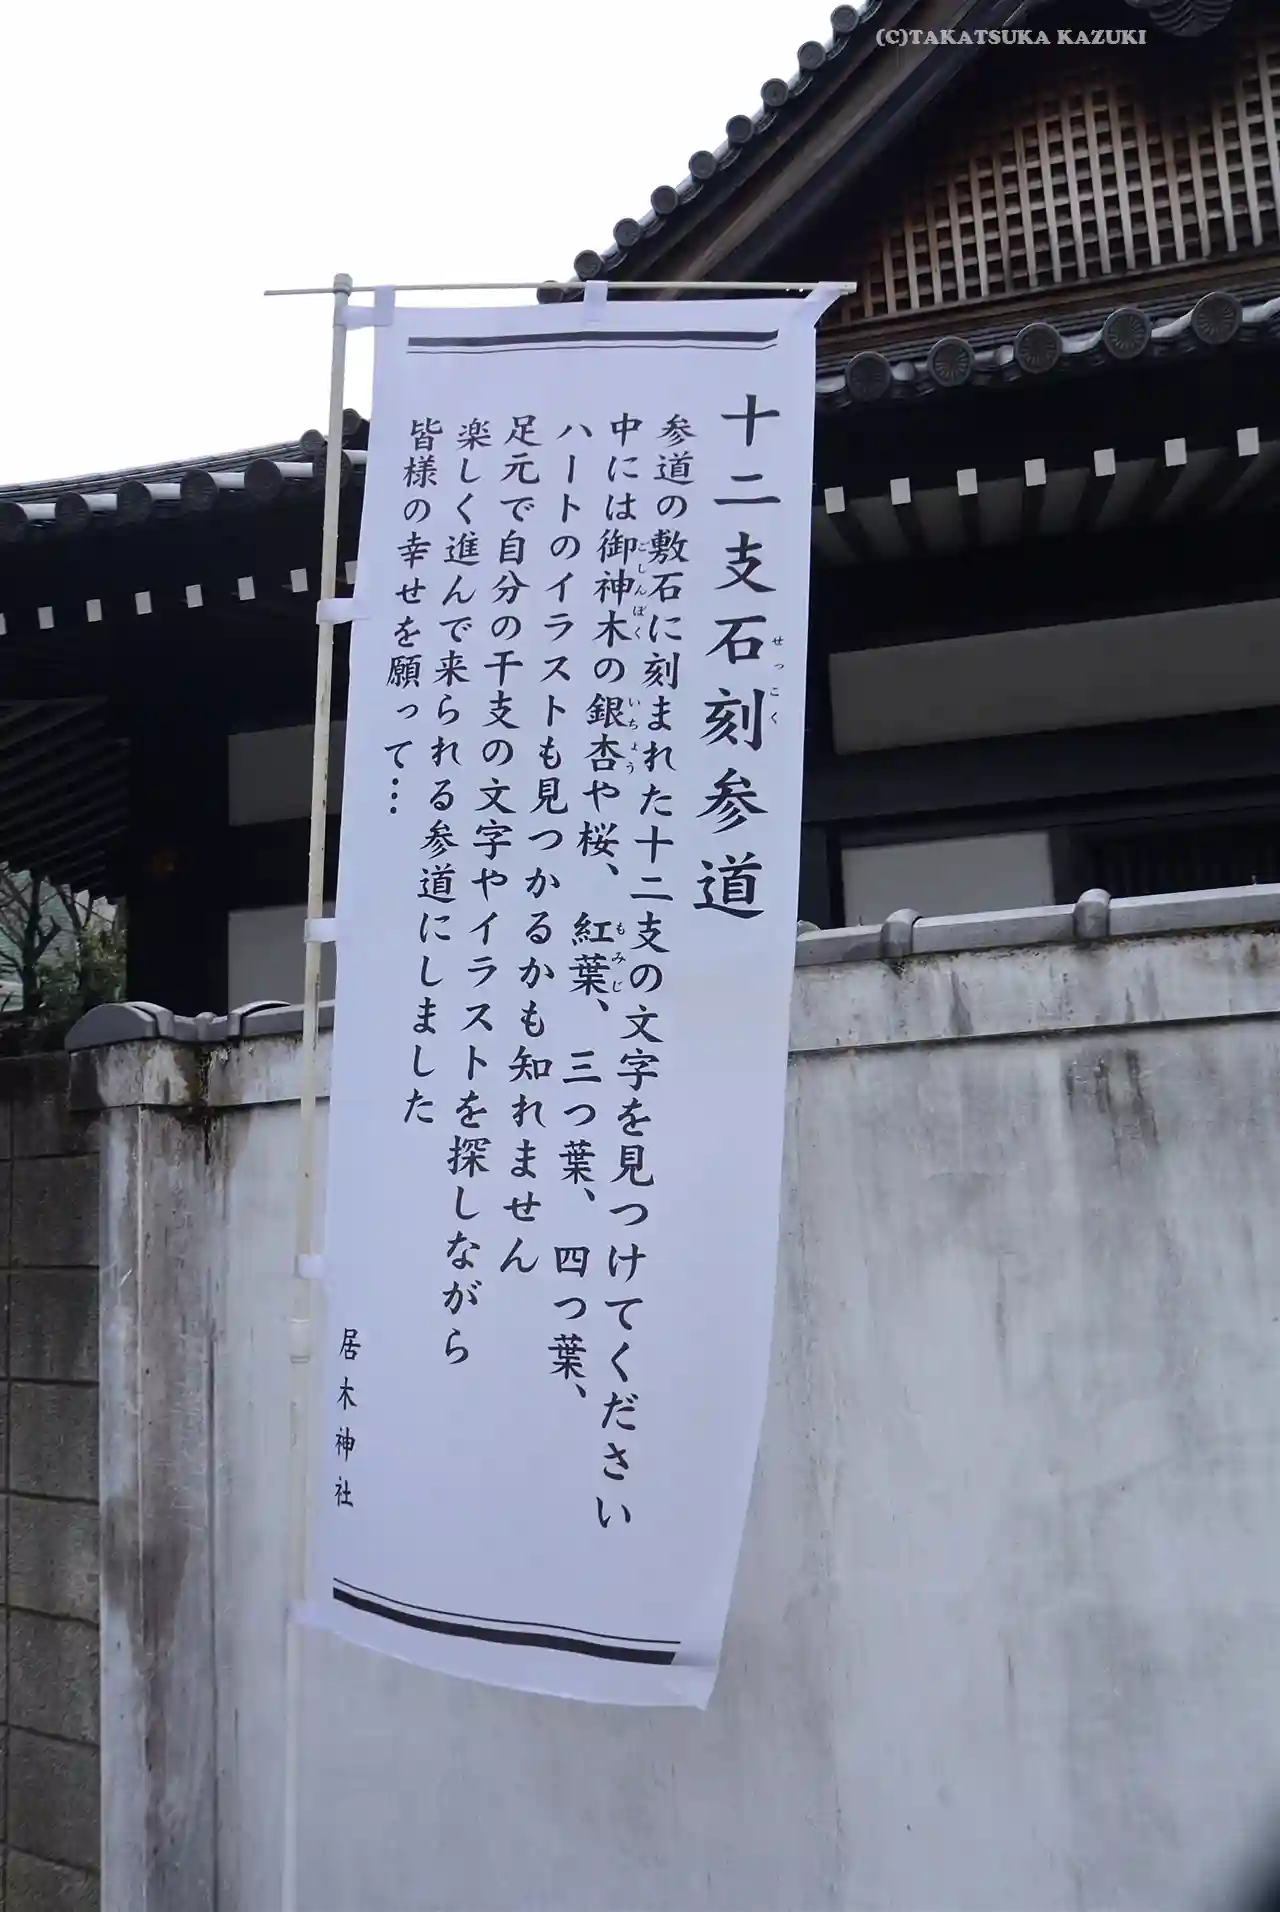 (C)TAKATSUKA KAZUKI
十二支石刻参道
せっこく
参道の敷石に刻まれた十二支の文字を見つけてください
中には御神木の銀杏や桜、紅葉、三つ葉、四つ葉、
ごしんぼく
いちょう
もみじ
ハートのイラストも見つかるかも知れません
足元で自分の干支の文字やイラストを探しながら
楽しく進んで来られる参道にしました
皆様の幸せを願って…
居木神社